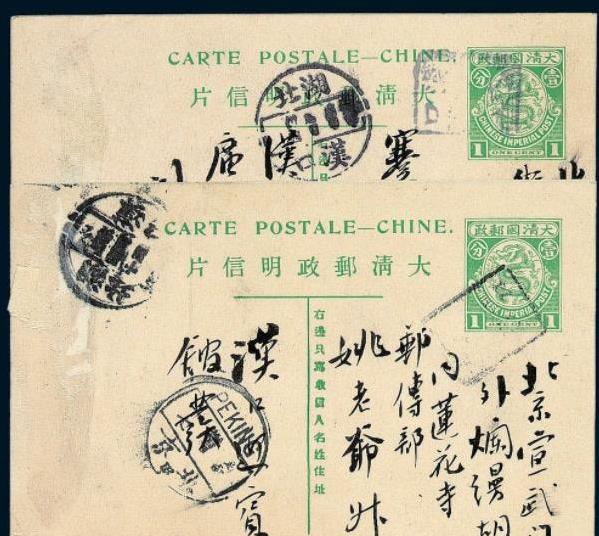 CARTE POSTALE—CHINE.
大清郵政明信片
大清國郵政
壹分
CHINESE IMPERIAL POST
1 ONE CENT 1
湖北
漢口
漢
CARTE POSTALE—CHINE.
大清郵政明信片
大清國郵政
壹分
CHINESE IMPERIAL POST
1 ONE CENT 1
右邊只寫收信人名姓住址
北京宣武
外爛縵胡
內蓮花寺
郵傳部
姚老爺
漢口
賓
館
PEKING